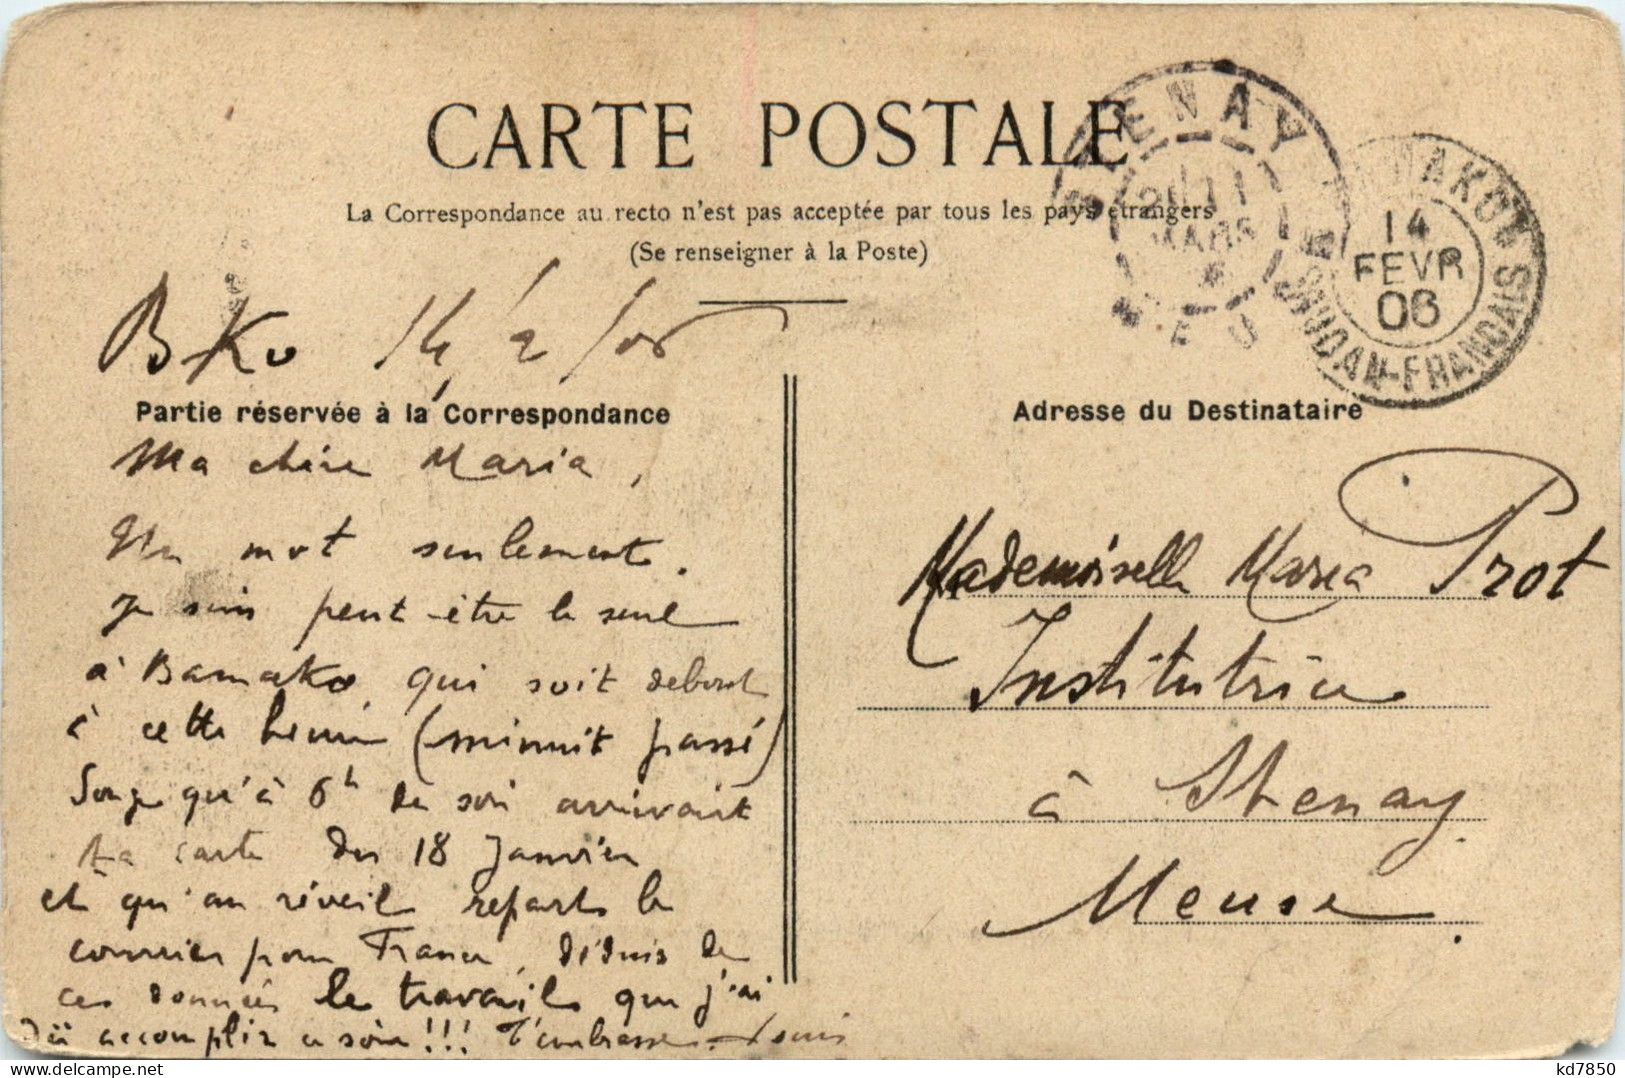 CARTE POSTALE
La Correspondance au recto n'est pas acceptée par tous les pays étrangers
(Se renseigner à la Poste)
STENAY
MARS
MEUSE
BAMAKO
14
FEVR
06
SOUDAN-FRANCAIS
BKo 14/2/06
Partie réservée à la Correspondance
Ma chère Maria,
Un mot seulement.
Je suis peut-être le seul
à Bamako qui soit debout
à cette heure (minuit passé)
Songe qu'à 6h du soir arrivait
ta carte du 18 Janvier
et qu'au réveil repart le
courrier pour France, déduis de
ces données le travail que j'ai
dû accomplir ce soir!!! T'embrasse. Louis
Adresse du Destinataire
Mademoiselle Maria Prot
Institutrice
à Stenay
Meuse.
delcampe.net
kd7850